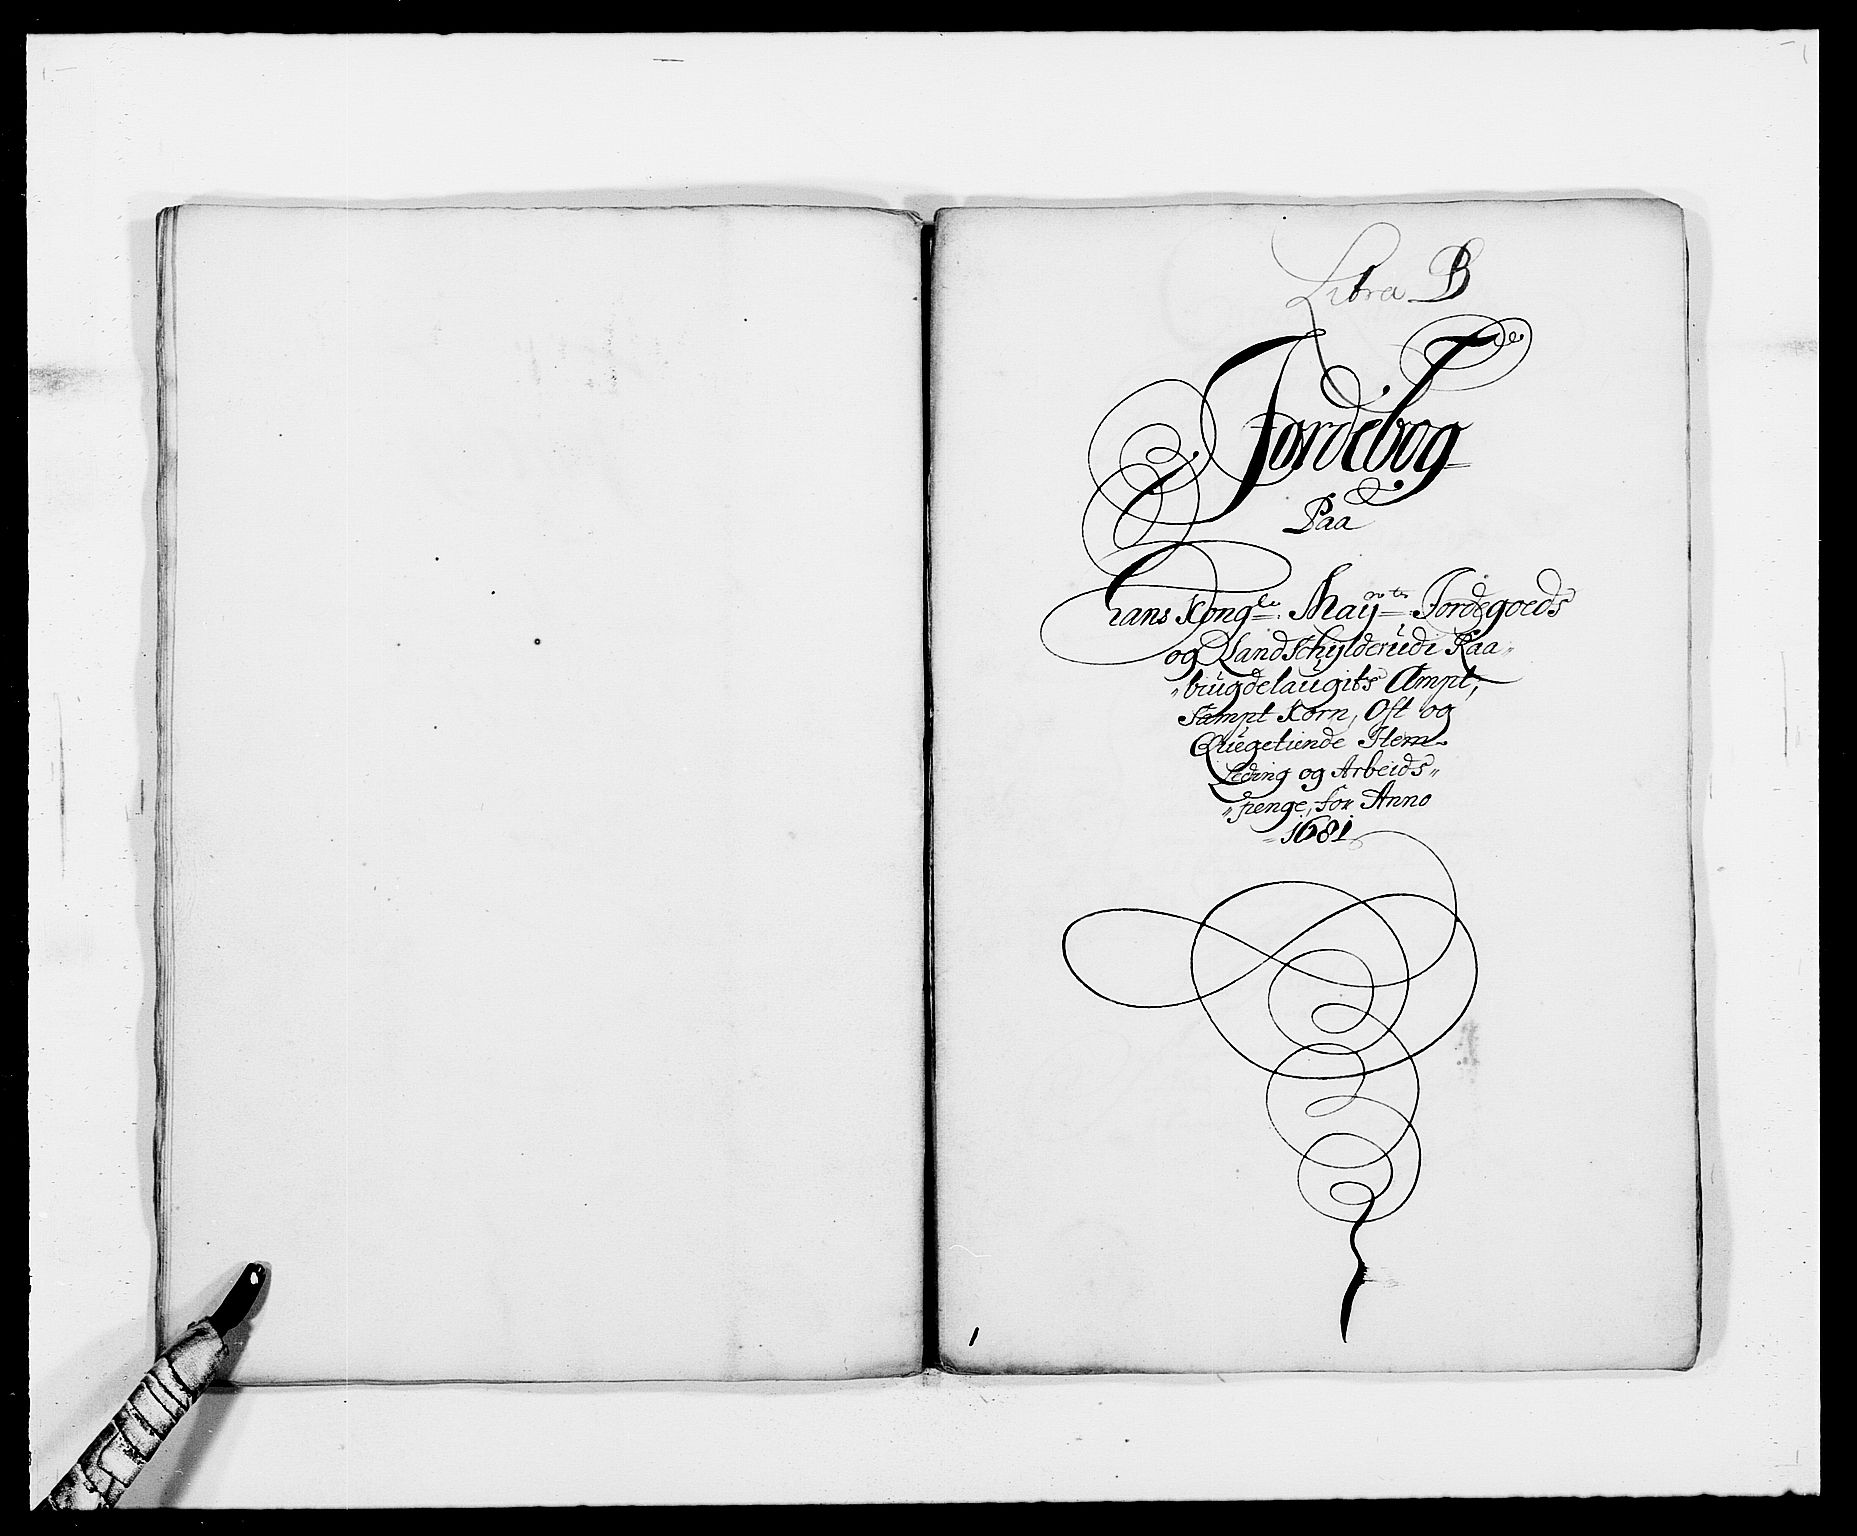 Litra B
Jordebog
Paa
Hans Kong<sup>le</sup>: May<sup>tts</sup> Jordegoeds
og Landschÿlderüdi Raa„
„bÿugdelaugits Ampt,
Sampt Korn, Ost og
Qüegetiende Item
Leding og Arbeids„
„penge, for Anno
1681
1